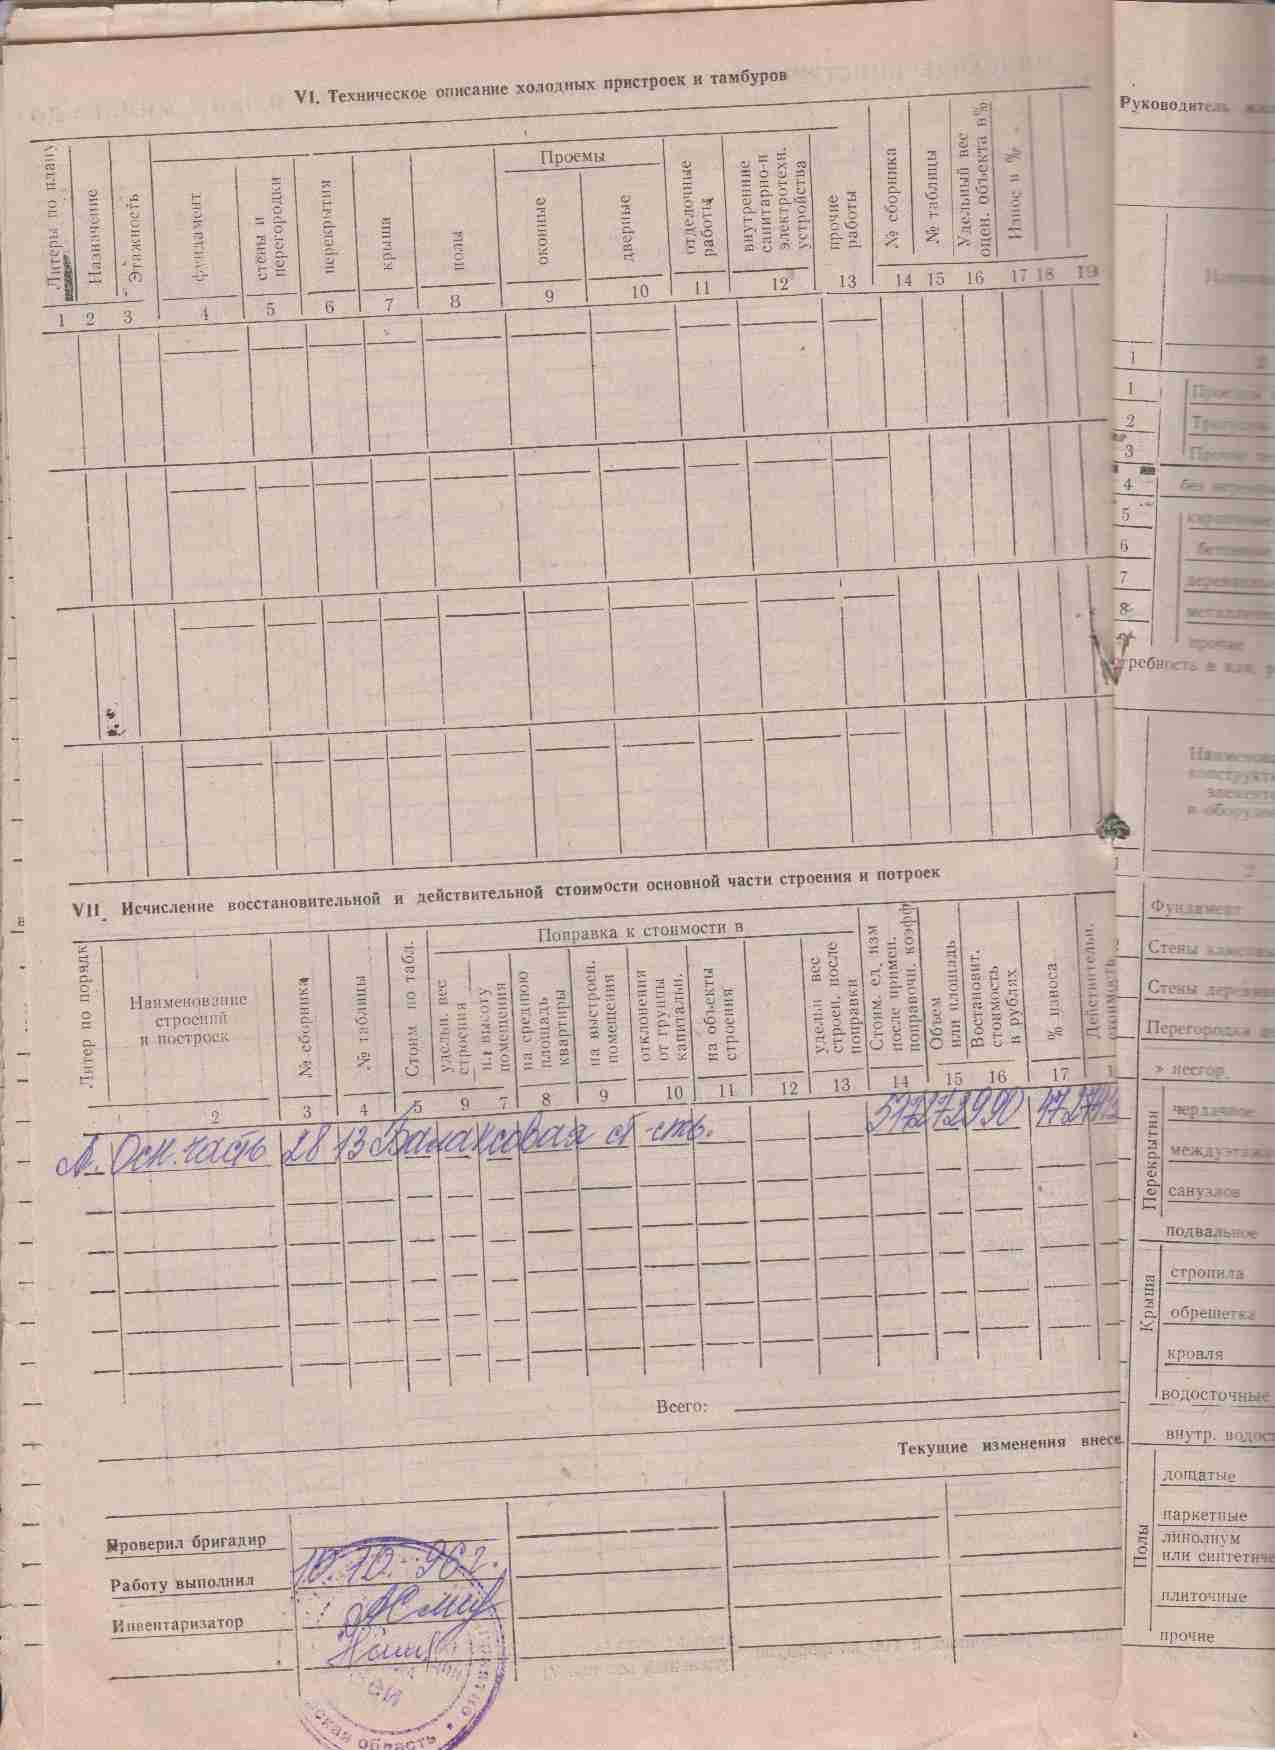 VI. Техническое описание холодных пристроек и тамбуров
Литеры по плану
Назначение
Этажность
фундамент
стены и
перегородки
перекрытия
крыша
полы
Проемы
оконные
дверные
отделочные
работы
внутренние
санитарно-и
электротехн.
устройства
прочие
работы
№ сборника
№ таблицы
Удельный вес
оцен. объекта в%
Износ в %
1 2 3 4 5 6 7 8 9 10 11 12 13 14 15 16 17 18 19
VII. Исчисление восстановительной и действительной стоимости основной части строения и потроек
Литер по порядк
Наименование
строений
и построек
№ сборника
№ таблицы
Стоим по табл.
Поправка к стоимости в
удельн. вес
строения
на высоту
помещения
на среднюю
площадь
квартиры
на выстроен.
помещения
отклонения
от группы
капитальн.
на объекты
строения
удельн вес
строен. после
поправки
Стоим. ед. изм
после примен.
поправочн. коэфф
Объем
или площадь
Востановит.
стоимость
в рублях
% износа
Действительн.
стоимость
1 2 3 4 5 9 7 8 9 10 11 12 13 14 15 16 17 1
А. Осн. часть 28 13 Балансовая ст-сть.
Всего:
Текущие изменения внесе
Проверил бригадир
Работу выполнил
10.10.96г.
Инвентаризатор
ская область
Руководитель
1
1
2
3
4
5
6
7
8
отребность в кап. р
Наименова
конструкти
элементо
и оборудо
Фундамент
Стены каменные
Стены деревян
Перегородки де
» несгор.
Перекрытия
чердачное
междуэтаж
санузлов
подвальное
Крыша
стропила
обрешетка
кровля
водосточные
внутр. водост
Полы
дощатые
паркетные
линолиум
или синтетиче
плиточные
прочие